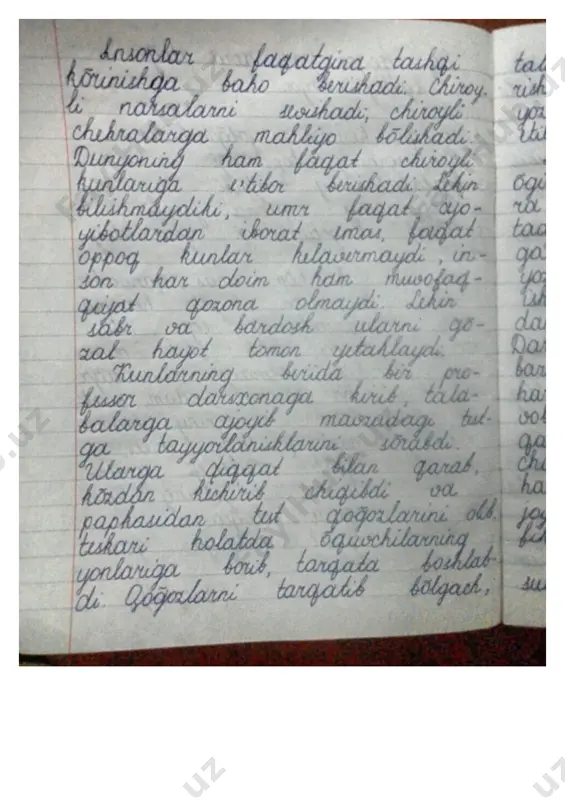 Insonlar faqatgina tashqi
kõrinishga baho berishadi. Chiroy-
li narsalarni sevishadi, chiroyli
chehralarga mahliyo bõlishadi.
Dunyoning ham faqat chiroyli
kunlariga e'tibor berishadi. Lekin
bilishmaydiki, umr faqat ajo-
yibotlardan iborat emas, faqat
oppoq kunlar kelavermaydi, in-
son har doim ham muvofaq-
qiyat qozona olmaydi. Lekin
sabr va bardosh ularni gõ-
zal hayot tomon yetaklaydi.
Kunlarning birida bir pro-
fessor darsxonaga kirib, tala-
balarga ajoyib mavzudagi test-
ga tayyorlanishlarini sõrabdi.
Ularga diqqat bilan qarab,
kõzdan kechirib chiqibdi va
papkasidan test qoğozlarini olib,
teskari holatda õquvchilarning
yonlariga borib, tarqata boshlab-
di. Qoğozlarni tarqatib bõlgach,